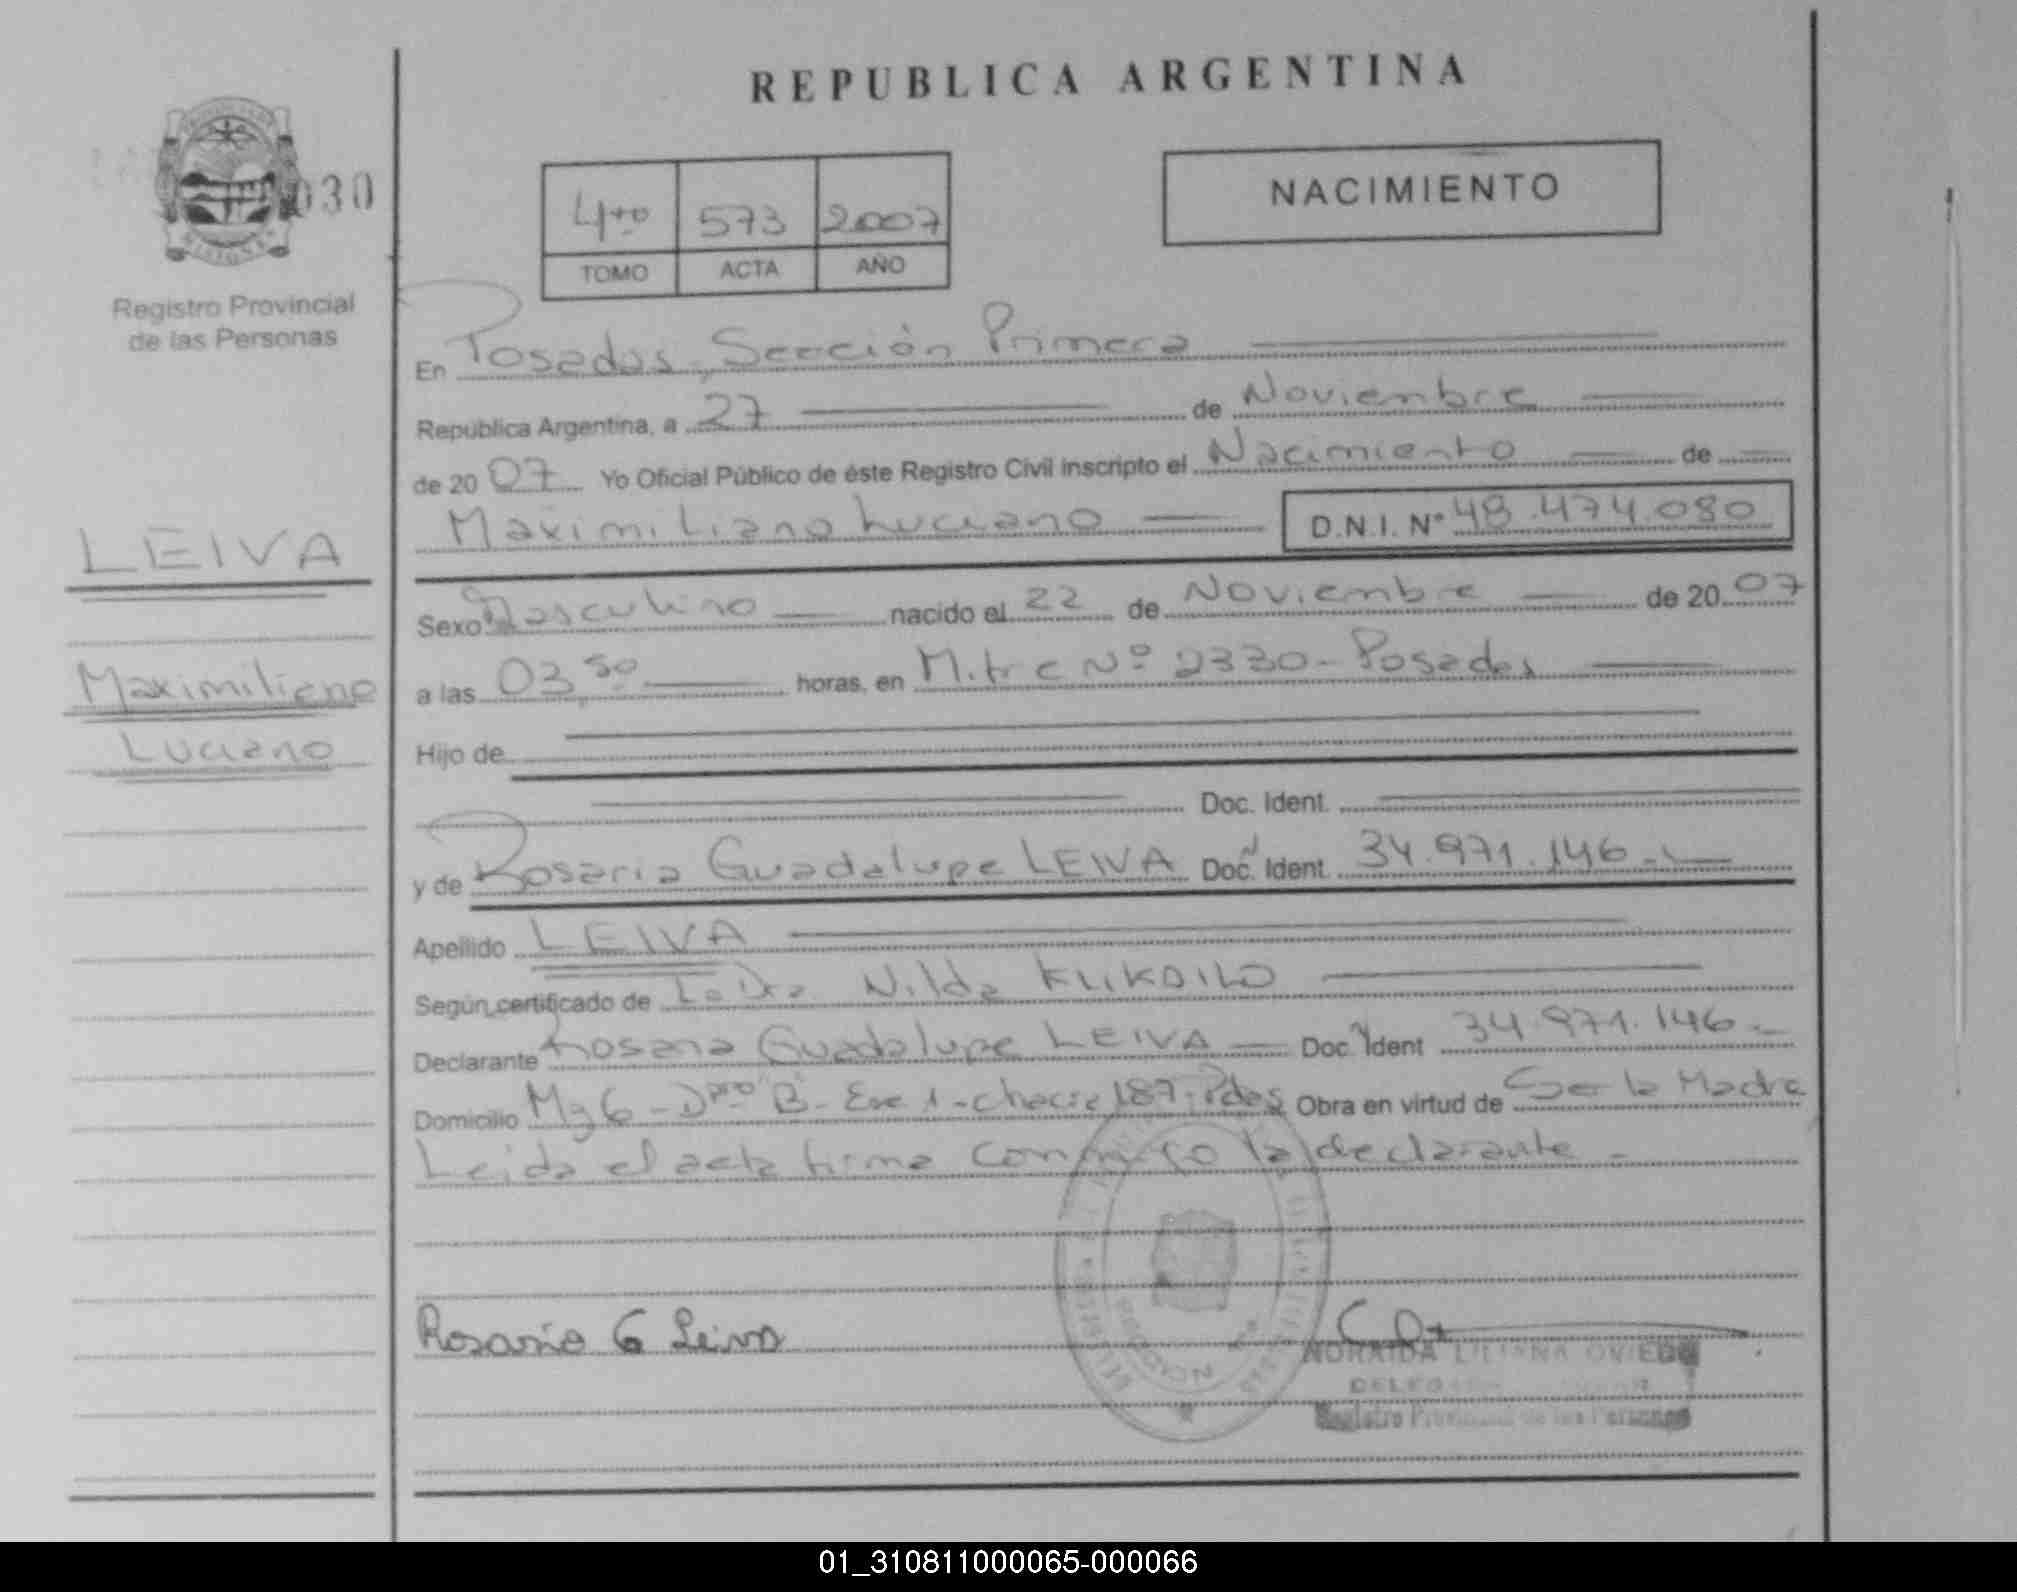 REPUBLICA ARGENTINA
030
Registro Provincial
de las Personas
4to 573 2007
TOMO ACTA AÑO
NACIMIENTO
En Posadas, Sección Primera
República Argentina, a 27 de Noviembre
de 2007 Yo Oficial Público de éste Registro Civil inscripto el Nacimiento de
Maximiliano Luciano D.N.I. Nº 48.474.080
LEIVA
Maximiliano
Luciano
Sexo Masculino nacido el 22 de Noviembre de 2007
a las 03,50 horas, en Mitre Nº 2330 - Posadas
Hijo de
Doc. Ident.
y de Rosario Guadalupe LEIVA Doc. Ident. 34.971.146.-
Apellido LEIVA
Según certificado de La Dra Nilda
Declarante Rosario Guadalupe LEIVA Doc. Ident 34.971.146.-
Domicilio Mz 6 - Dpto "B" - Esc 1 - Chacra 187 - Pdas Obra en virtud de Ser la Madre
Leida el acta firma conmigo la declarante -
Rosario G Leiva
NORAIDA LILIANA OVIEDO
Registro Provincial de las Personas
01_310811000065-000066